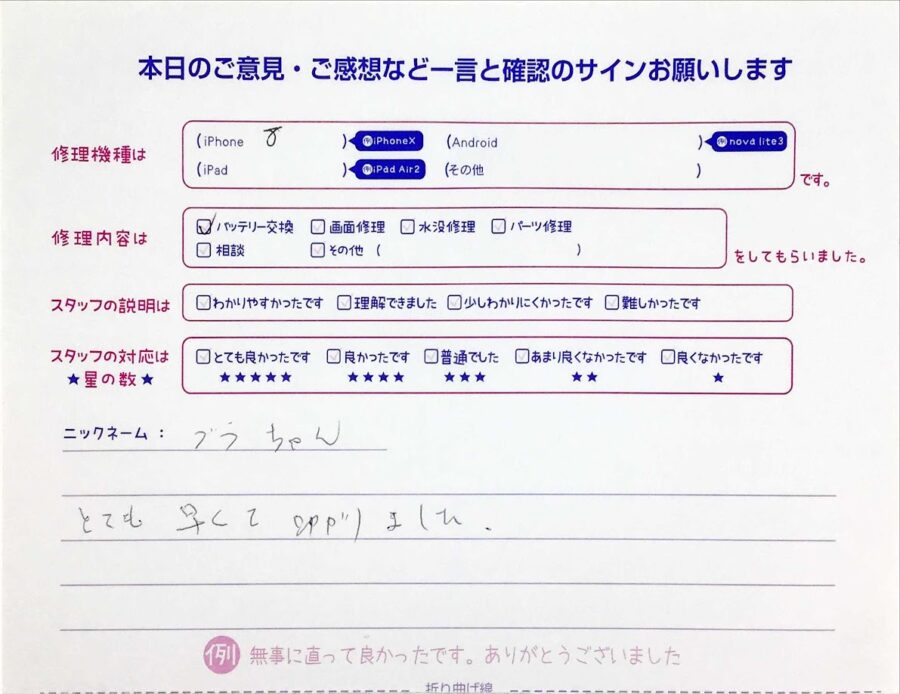 本日のご意見・ご感想など一言と確認のサインお願いします
修理機種は (iPhone 8 ) iPhoneX (Android ) nova lite3
(iPad ) iPad Air2 (その他 ) です。
修理内容は バッテリー交換 画面修理 水没修理 パーツ修理
相談 その他 ( ) をしてもらいました。
スタッフの説明は わかりやすかったです 理解できました 少しわかりにくかったです 難しかったです
スタッフの対応は とても良かったです 良かったです 普通でした あまり良くなかったです 良くなかったです
★星の数★ ★★★★★ ★★★★ ★★★ ★★ ★
ニックネーム： ブラちゃん
とても 早くて ました.
例 無事に直って良かったです。ありがとうございました
折り曲げ線